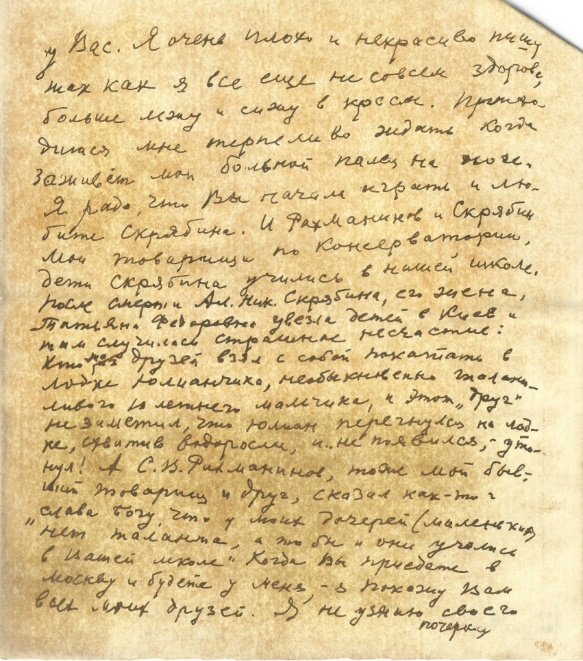 у Вас. Я очень плохо и некрасиво пишу
так как я все еще не совсем здорова,
больше лежу и сижу в кресл. Прихо-
дится мне терпеливо ждать когда
заживёт мой больной палец на ноге.
Я рада, что Вы начали играть и лю-
бите Скрябина. И Рахманинов и Скрябин
мои товарищи по консерватории,
дети Скрябина учились в нашей школе.
После смерти Ал. Ник. Скрябина, его жена,
Татьяна Федоровна увезла детей в Киев и
там случилось страшное несчастие:
Кто из друзей взял с собой покатать в
лодке Юлианчика, необыкновенно талант-
ливого 10 летнего мальчика, и этот "друг"
не заметил, что Юлиан перегнулся на лод-
ке, схватив водоросли, и.. не появился, - уто-
нул! А С. В. Рахманинов, тоже мой быв-
ший товарищ и друг, сказал как-то:
"слава богу, что у моих дочерей (маленьких)
нет таланта, а то бы и они учились
в Вашей школе" Когда Вы приедете в
Москву и будете у меня, - я покажу Вам
всех моих друзей. Я не узнаю своего
почерка